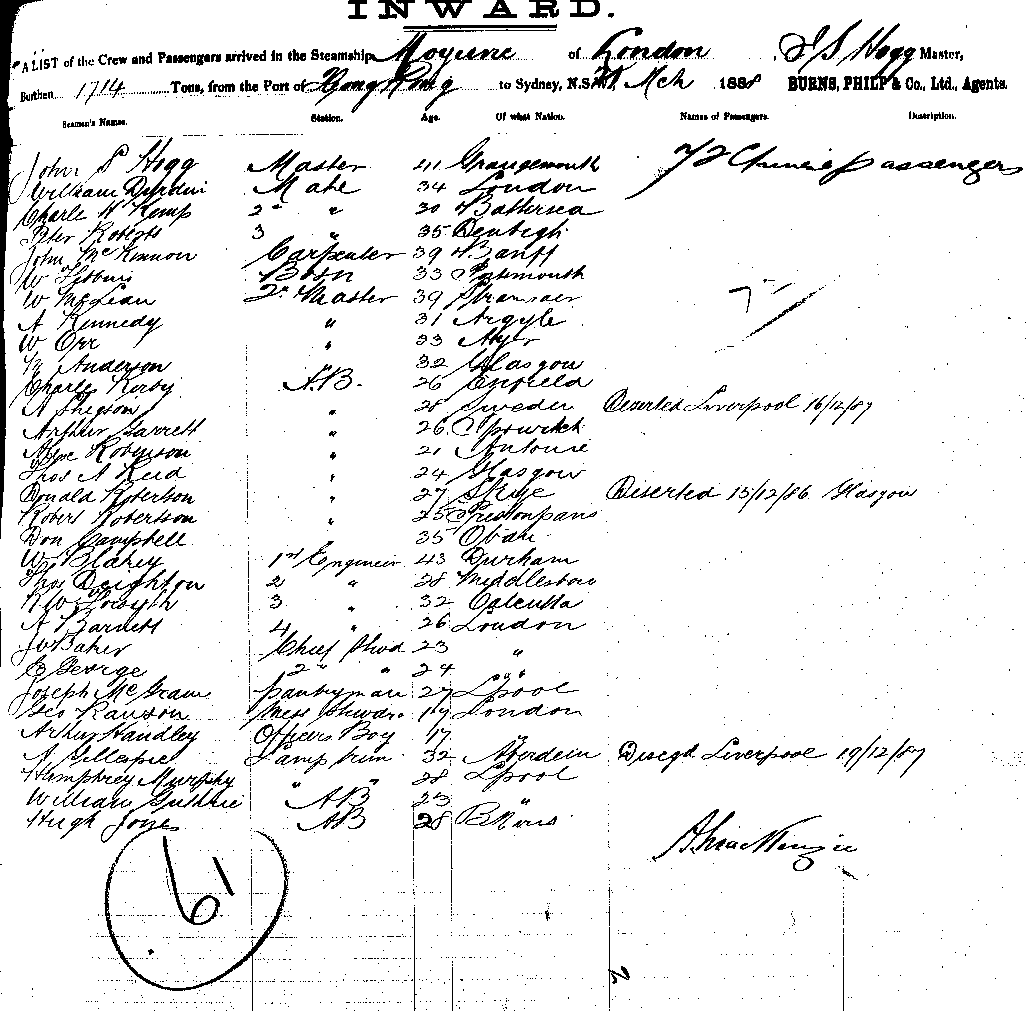 INWARD.
A LIST of the Crew and Passengers arrived in the Steamship Moyune of London J S Hogg Master,
Burthen 1714 Tons, from the Port of Hong Kong to Sydney, N.S.W. Mch 1888 BURNS, PHILP & Co., Ltd., Agents.
Seamen's Names. Station. Age. Of what Nation. Names of Passengers. Description.
John S Hogg Master 41 Grangemouth 72 Chinese passengers
William Mate 34 London
Charle H Kemp 2nd " 30 Battersea
Peter Roberts 3 " 35 Denbigh
John McKinnon Carpenter 39 Banff
W Bosn 33
W McLean 2nd Master 39 Stranraer
A Kennedy " 31 Argyle
W Orr " 33 Ayr
Anderson 32 Glasgow
Charles Kirby A.B. 26 Enfield
A " 28 Sweden Deserted Liverpool 16/12/87
Arthur Garrett " 26 Ipswich
Robinson " 21
Thos A Reid " 24 Glasgow
Donald Robertson " 27 Skye Deserted 15/12/86 Glasgow
Robert Robertson " 25 Prestonpans
Don Campbell 35 Oban
W Blakey 1st Engineer 43 Durham
Thos Deighton 2 " 28 Middlesboro
R W Forsyth 3 " 32 Calcutta
A Barnett 4 " 26 London
J W Baker Chief Stwd 23 "
G George 2nd " 24 "
Joseph McGraw pantryman 27 Lpool
Geo Ranson Mess Steward 19 London
Arthur Handley Officers Boy 17 "
A Gillespie Lamp trim 32 Aberdeen Discgd Liverpool 19/12/87
Humphrey Murphy " " 28 Lpool
William Guthrie AB 23 "
Hugh Jones AB 28
61